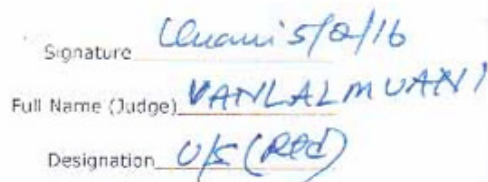 Signature 5/2/16
Full Name (Judge) VANLALMUANI
Designation U/S (Rtd)